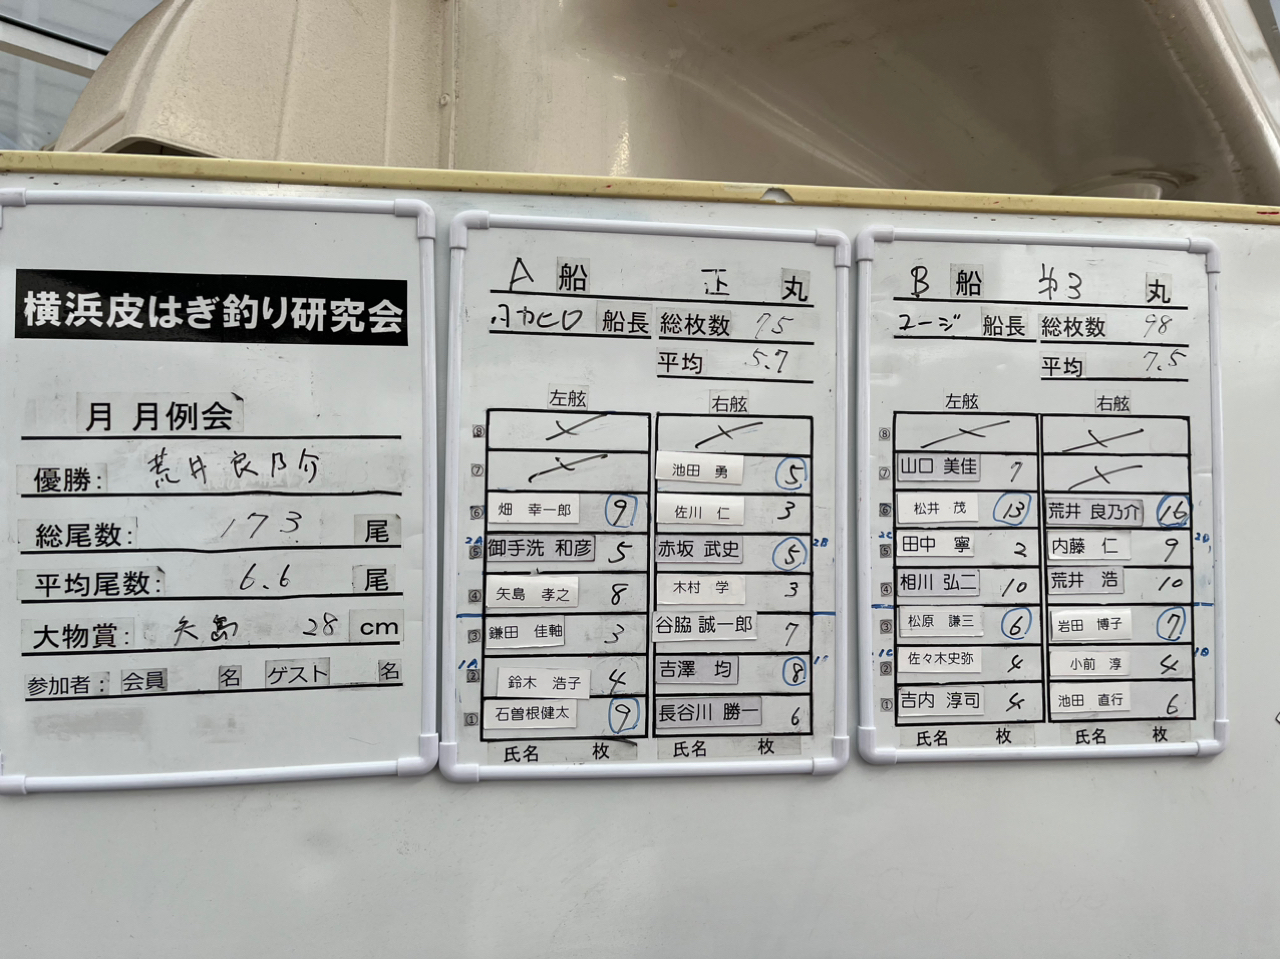 横浜皮はぎ釣り研究会
月 月例会
優勝: 荒井良乃介
総尾数: 173 尾
平均尾数: 6.6 尾
大物賞: 矢島 28 cm
参加者: 会員 名 ゲスト 名
A 船 正 丸
タカヒロ 船長 総枚数 75
平均 5.7
左舷 右舷
⑧
⑦ 池田 勇 5
⑥ 畑 幸一郎 9 佐川 仁 3
2A ⑤ 御手洗 和彦 5 赤坂 武史 5 2B
④ 矢島 孝之 8 木村 学 3
③ 鎌田 佳軸 3 谷脇 誠一郎 7
1A ② 鈴木 浩子 4 吉澤 均 8
① 石曽根健太 9 長谷川 勝一 6
氏名 枚 氏名 枚
B 船 第3 丸
ユージ 船長 総枚数 98
平均 7.5
左舷 右舷
⑧
⑦ 山口 美佳 7
⑥ 松井 茂 13 荒井 良乃介 16
2C ⑤ 田中 寧 2 内藤 仁 9 2D
④ 相川 弘二 10 荒井 浩 10
③ 松原 謙三 6 岩田 博子 7
1C ② 佐々木史弥 4 小前 淳 4
① 吉内 淳司 4 池田 直行 6
氏名 枚 氏名 枚